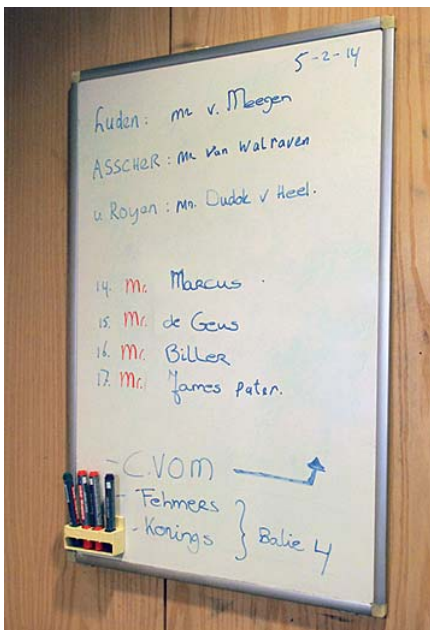 5-2-14
Luden: mr v. Meegen
ASSCHER: Mr Van Walraven
v. Royen: mr. Dudok v Heel.
14. Mr. Marcus
15. Mr. de Geus
16. Mr. Biller
17. Mr. James Pater.
- C.VOM
- Fehmers
- Konings } Balie 4